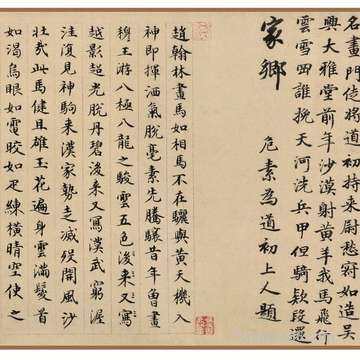 名畫門伎將道初持來尉愁窮如造吳
興大雅堂前年沙漠射黃羊我馬飛行
雲雪誰挽天河洗兵甲但騎款段還
家鄉
危素為道初上人題
趙翰林畫馬如相馬不在驪與黃天機入
神即揮洒氣脫毫素先騰驤昔年曾畫
穆王游八極八龍之駿雲五色後來又寫
越影超光脫丹碧後來又寫漢武窮渥
洼復見神駒來漢家勢走滅沒開風沙
壯哉此馬健且雄玉花遍身雲滿鬃首
如渴烏眼如電皎如疋練橫晴空使之